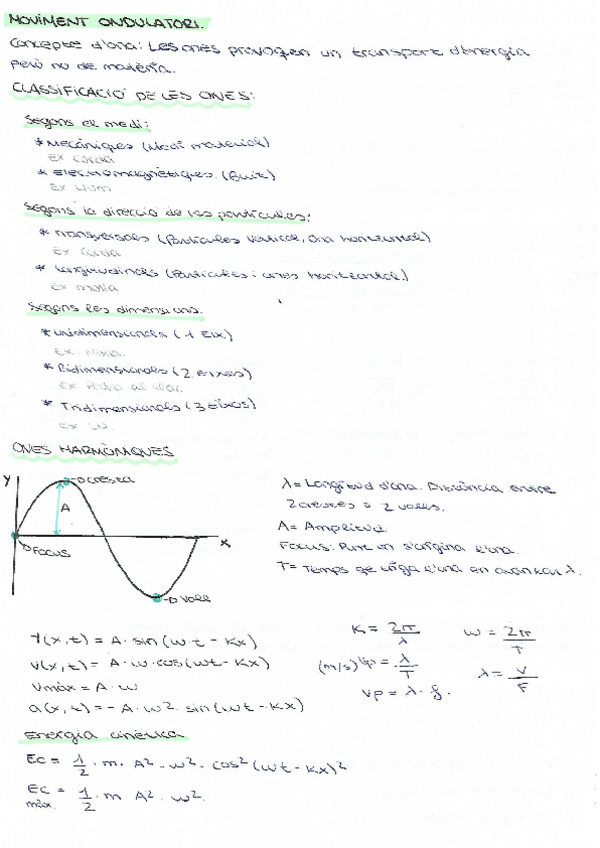 MOVIMENT ONDULATORI.
Concepte d'ona: Les ones provoquen un transport d'energia
però no de matèria.
CLASSIFICACIÓ DE LES ONES:
Segons el medi:
* Mecàniques (Medi material)
Ex corda
* Electromagnètiques (Buit)
Ex Llum
Segons la direcció de les partícules:
* Transversals (partícules vertical, ona horitzontal)
Ex corda
* Longitudinals (partícules i ones horitzontal)
Ex molla
Segons les dimensions.
* Unidimensionals (1 Eix)
Ex.
* Bidimensionals (2 eixos)
Ex Pedra al llac
* Tridimensionals (3 eixos)
Ex
ONES HARMÒNIQUES
Y
CRESTA
A
X
FOCUS
VALL
λ = Longitud d'ona. Distància entre
2 crestes o 2 valls.
A = Amplitud
Focus: Punt on s'origina l'ona.
T = Temps que triga l'ona en avançar λ.
Y(x,t) = A · sin(wt - Kx)
V(x,t) = A · w · cos(wt - Kx)
Vmàx = A · w
a(x,t) = - A · w² · sin(wt - Kx)
K = 2π/λ
w = 2π/T
(m/s) Vp = λ/T
λ = V/F
Vp = λ · f.
Energia cinètica
Ec = 1/2 · m · A² · w² · cos²(wt - Kx)²
Ec màx. = 1/2 · m · A² · w².